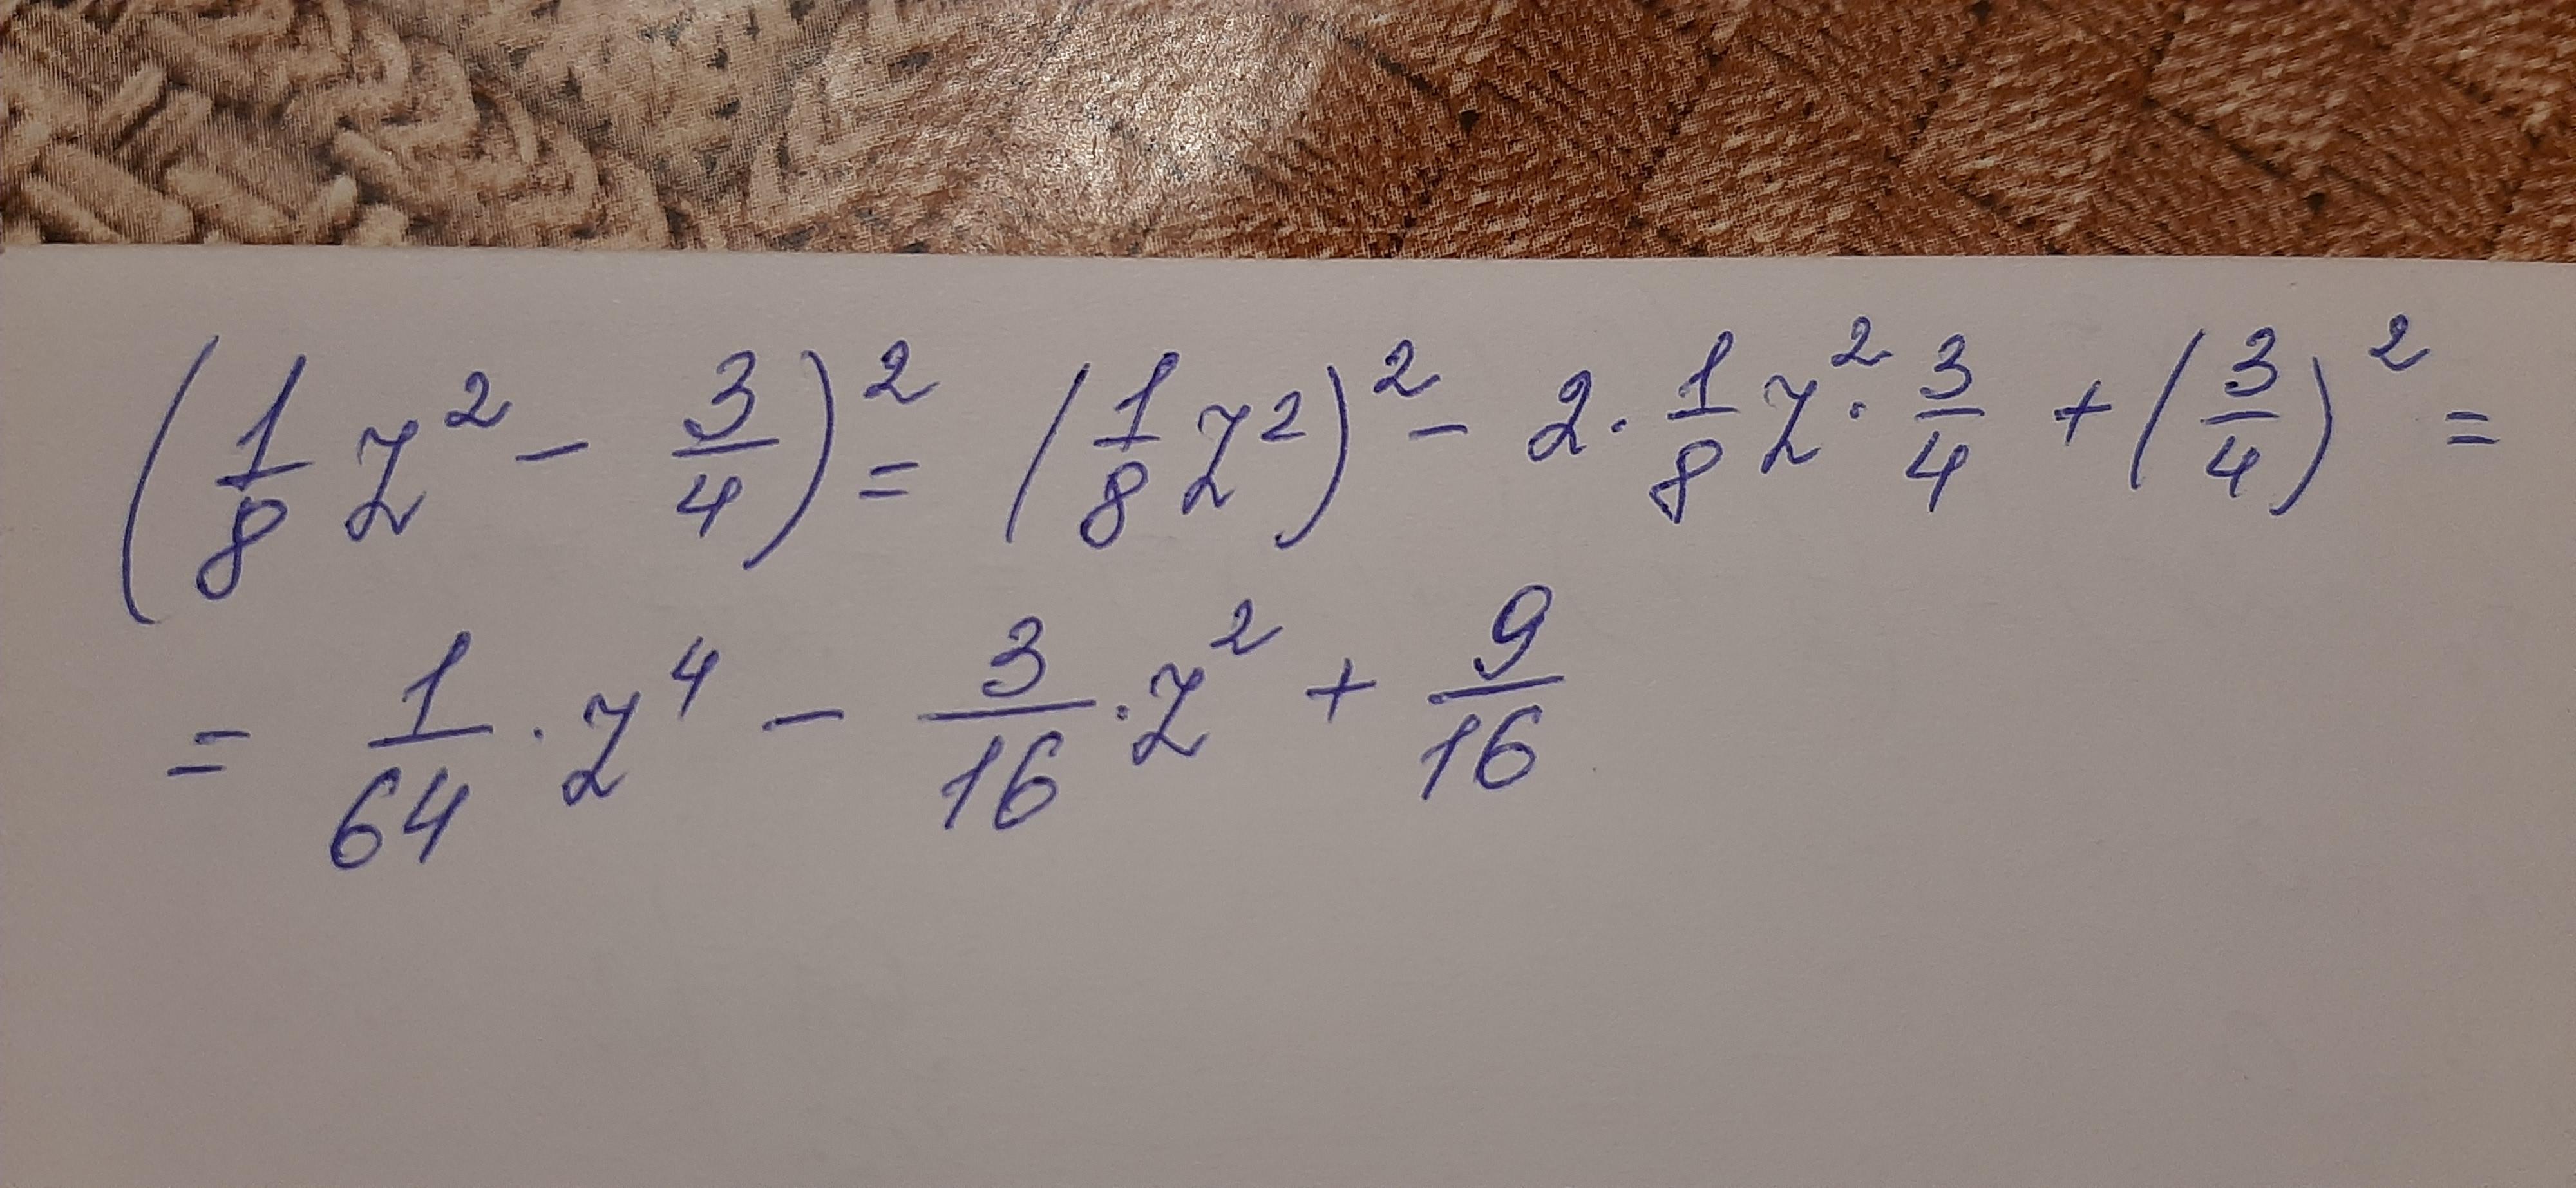 (1/8 z² - 3/4)² = (1/8 z²)² - 2 · 1/8 z² · 3/4 + (3/4)² =
= 1/64 · z⁴ - 3/16 · z² + 9/16